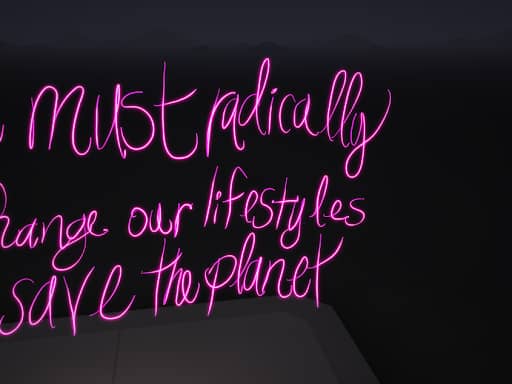 must radically
hange our lifestyles
save the planet